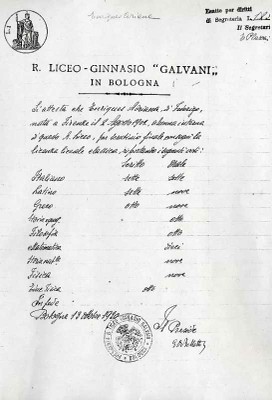 Enriques Adriana
Esatte per diritti
di Segreteria L.
Il Segretario
R. LICEO-GINNASIO "GALVANI„
IN BOLOGNA
Si attesta che Enriques Adriana, di Federigo,
nata a Firenze il 2 Agosto 1902, alunna interna
di questo R. Liceo, per scrutinio finale conseguì la
licenza liceale classica, riportando i seguenti voti:
Scritto Orale
Italiano sette sette
Latino sette nove
Greco otto nove
Storia otto
Filosofia otto
Matematica dieci
Storia nat. nove
Fisica nove
otto
In fede
Bologna 13 ottobre 1920
Il Preside